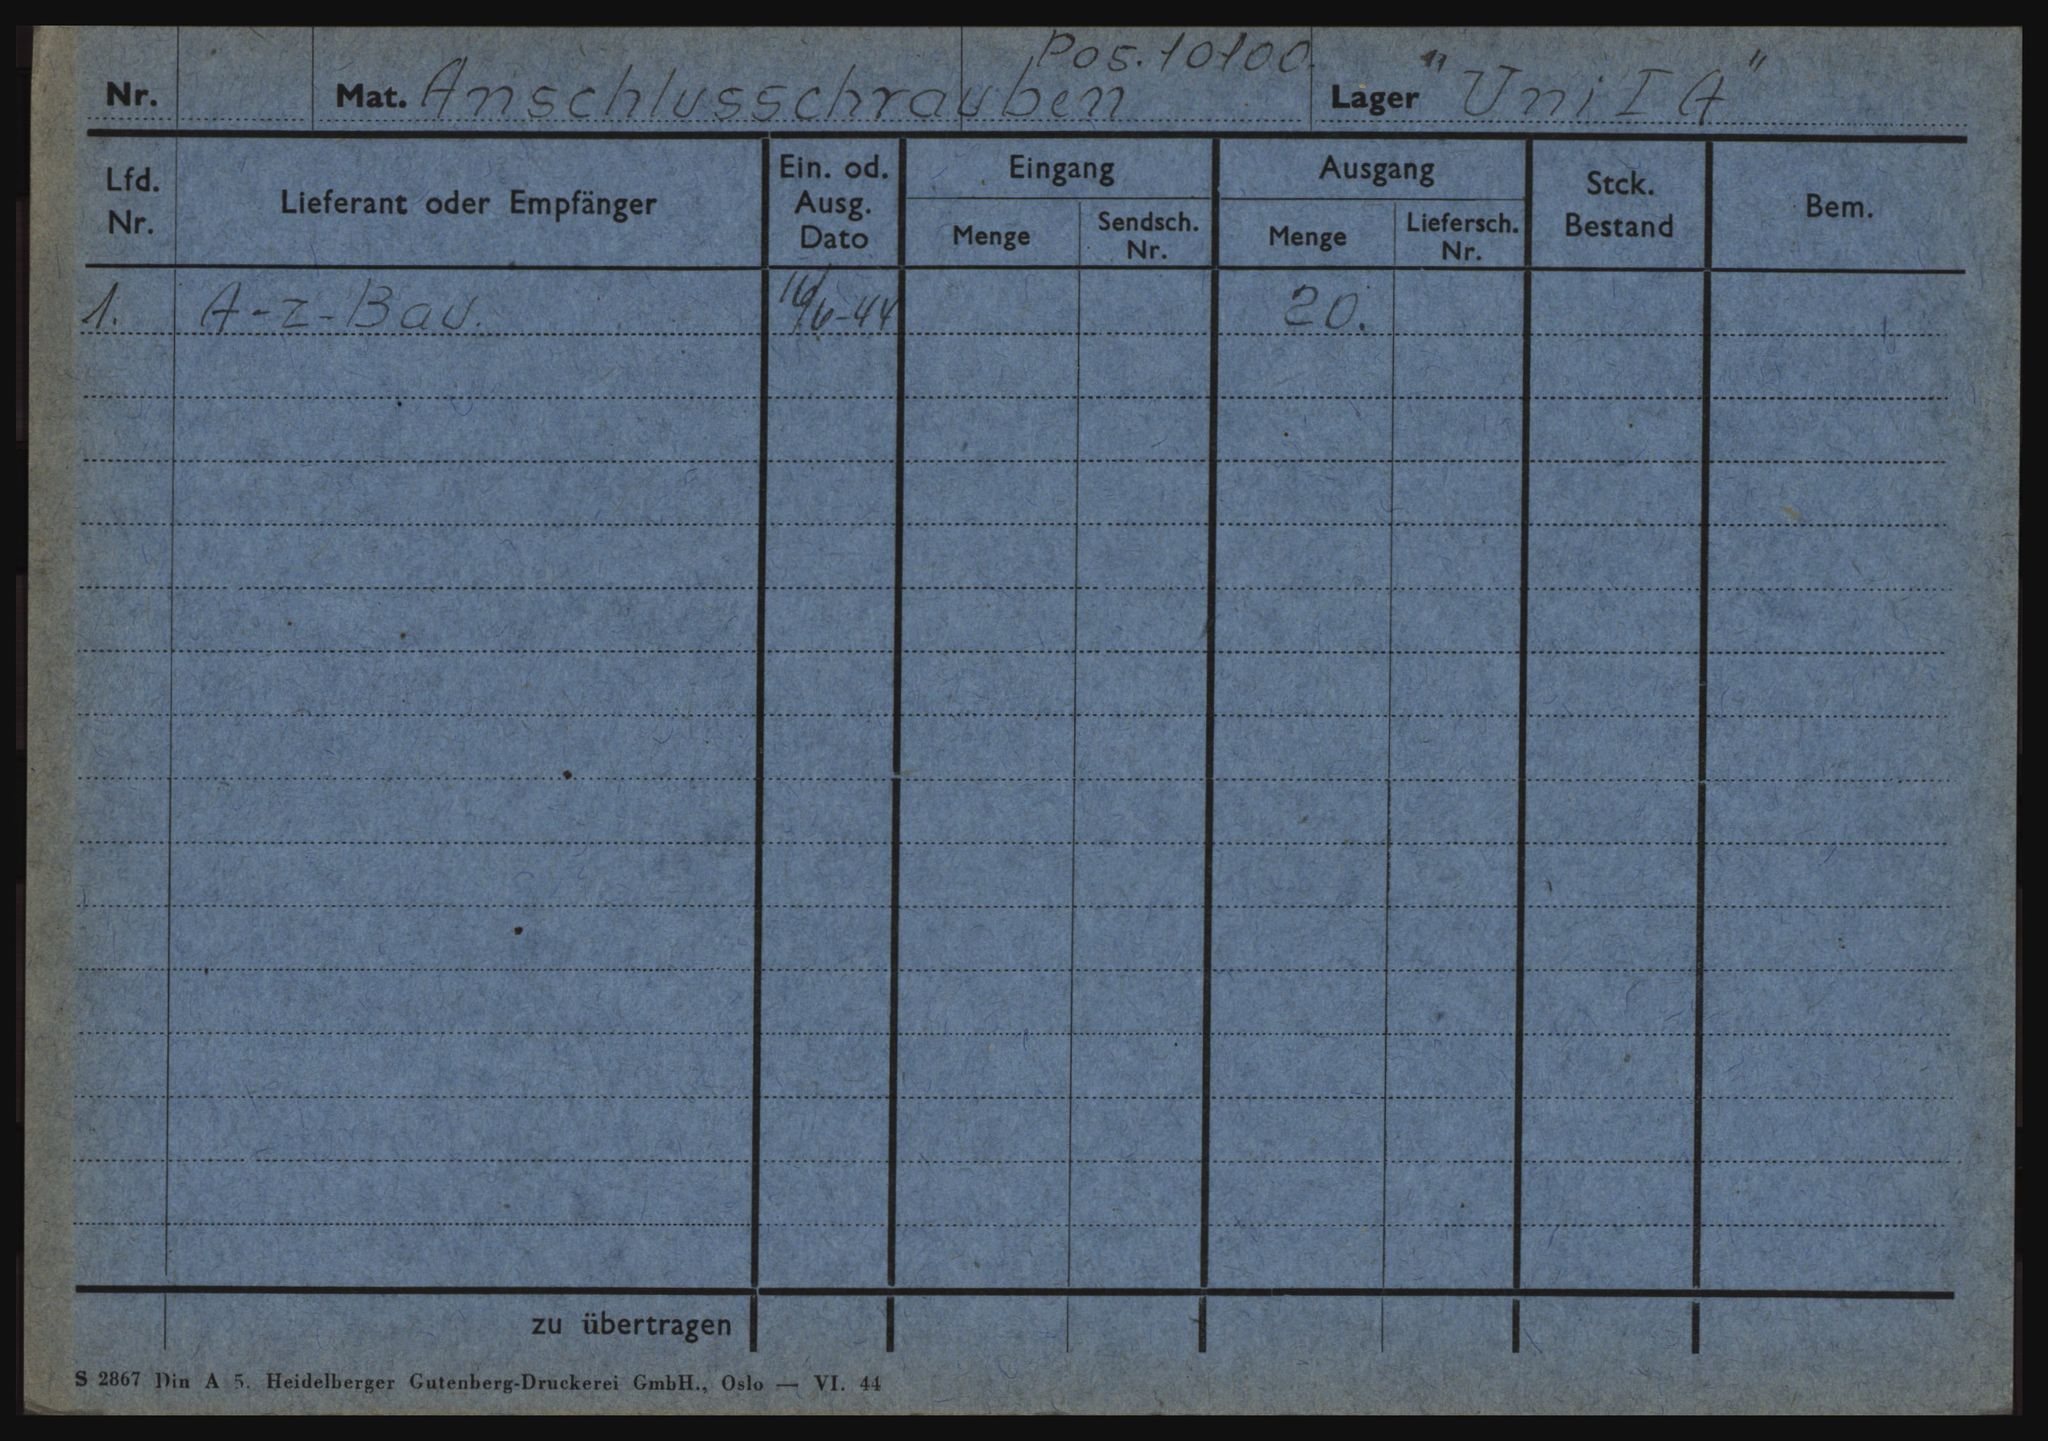 Pos. 10100.
Nr. Mat. Anschlusschrauben Lager "Uni I A"
Lfd. Nr. Lieferant oder Empfänger Ein. od. Ausg. Dato Eingang Menge Sendsch. Nr. Ausgang Menge Liefersch. Nr. Stck. Bestand Bem.
1. A-Z-Bau. /6-44 20.
zu übertragen
S 2867 Din A 5. Heidelberger Gutenberg-Druckerei GmbH., Oslo — VI. 44